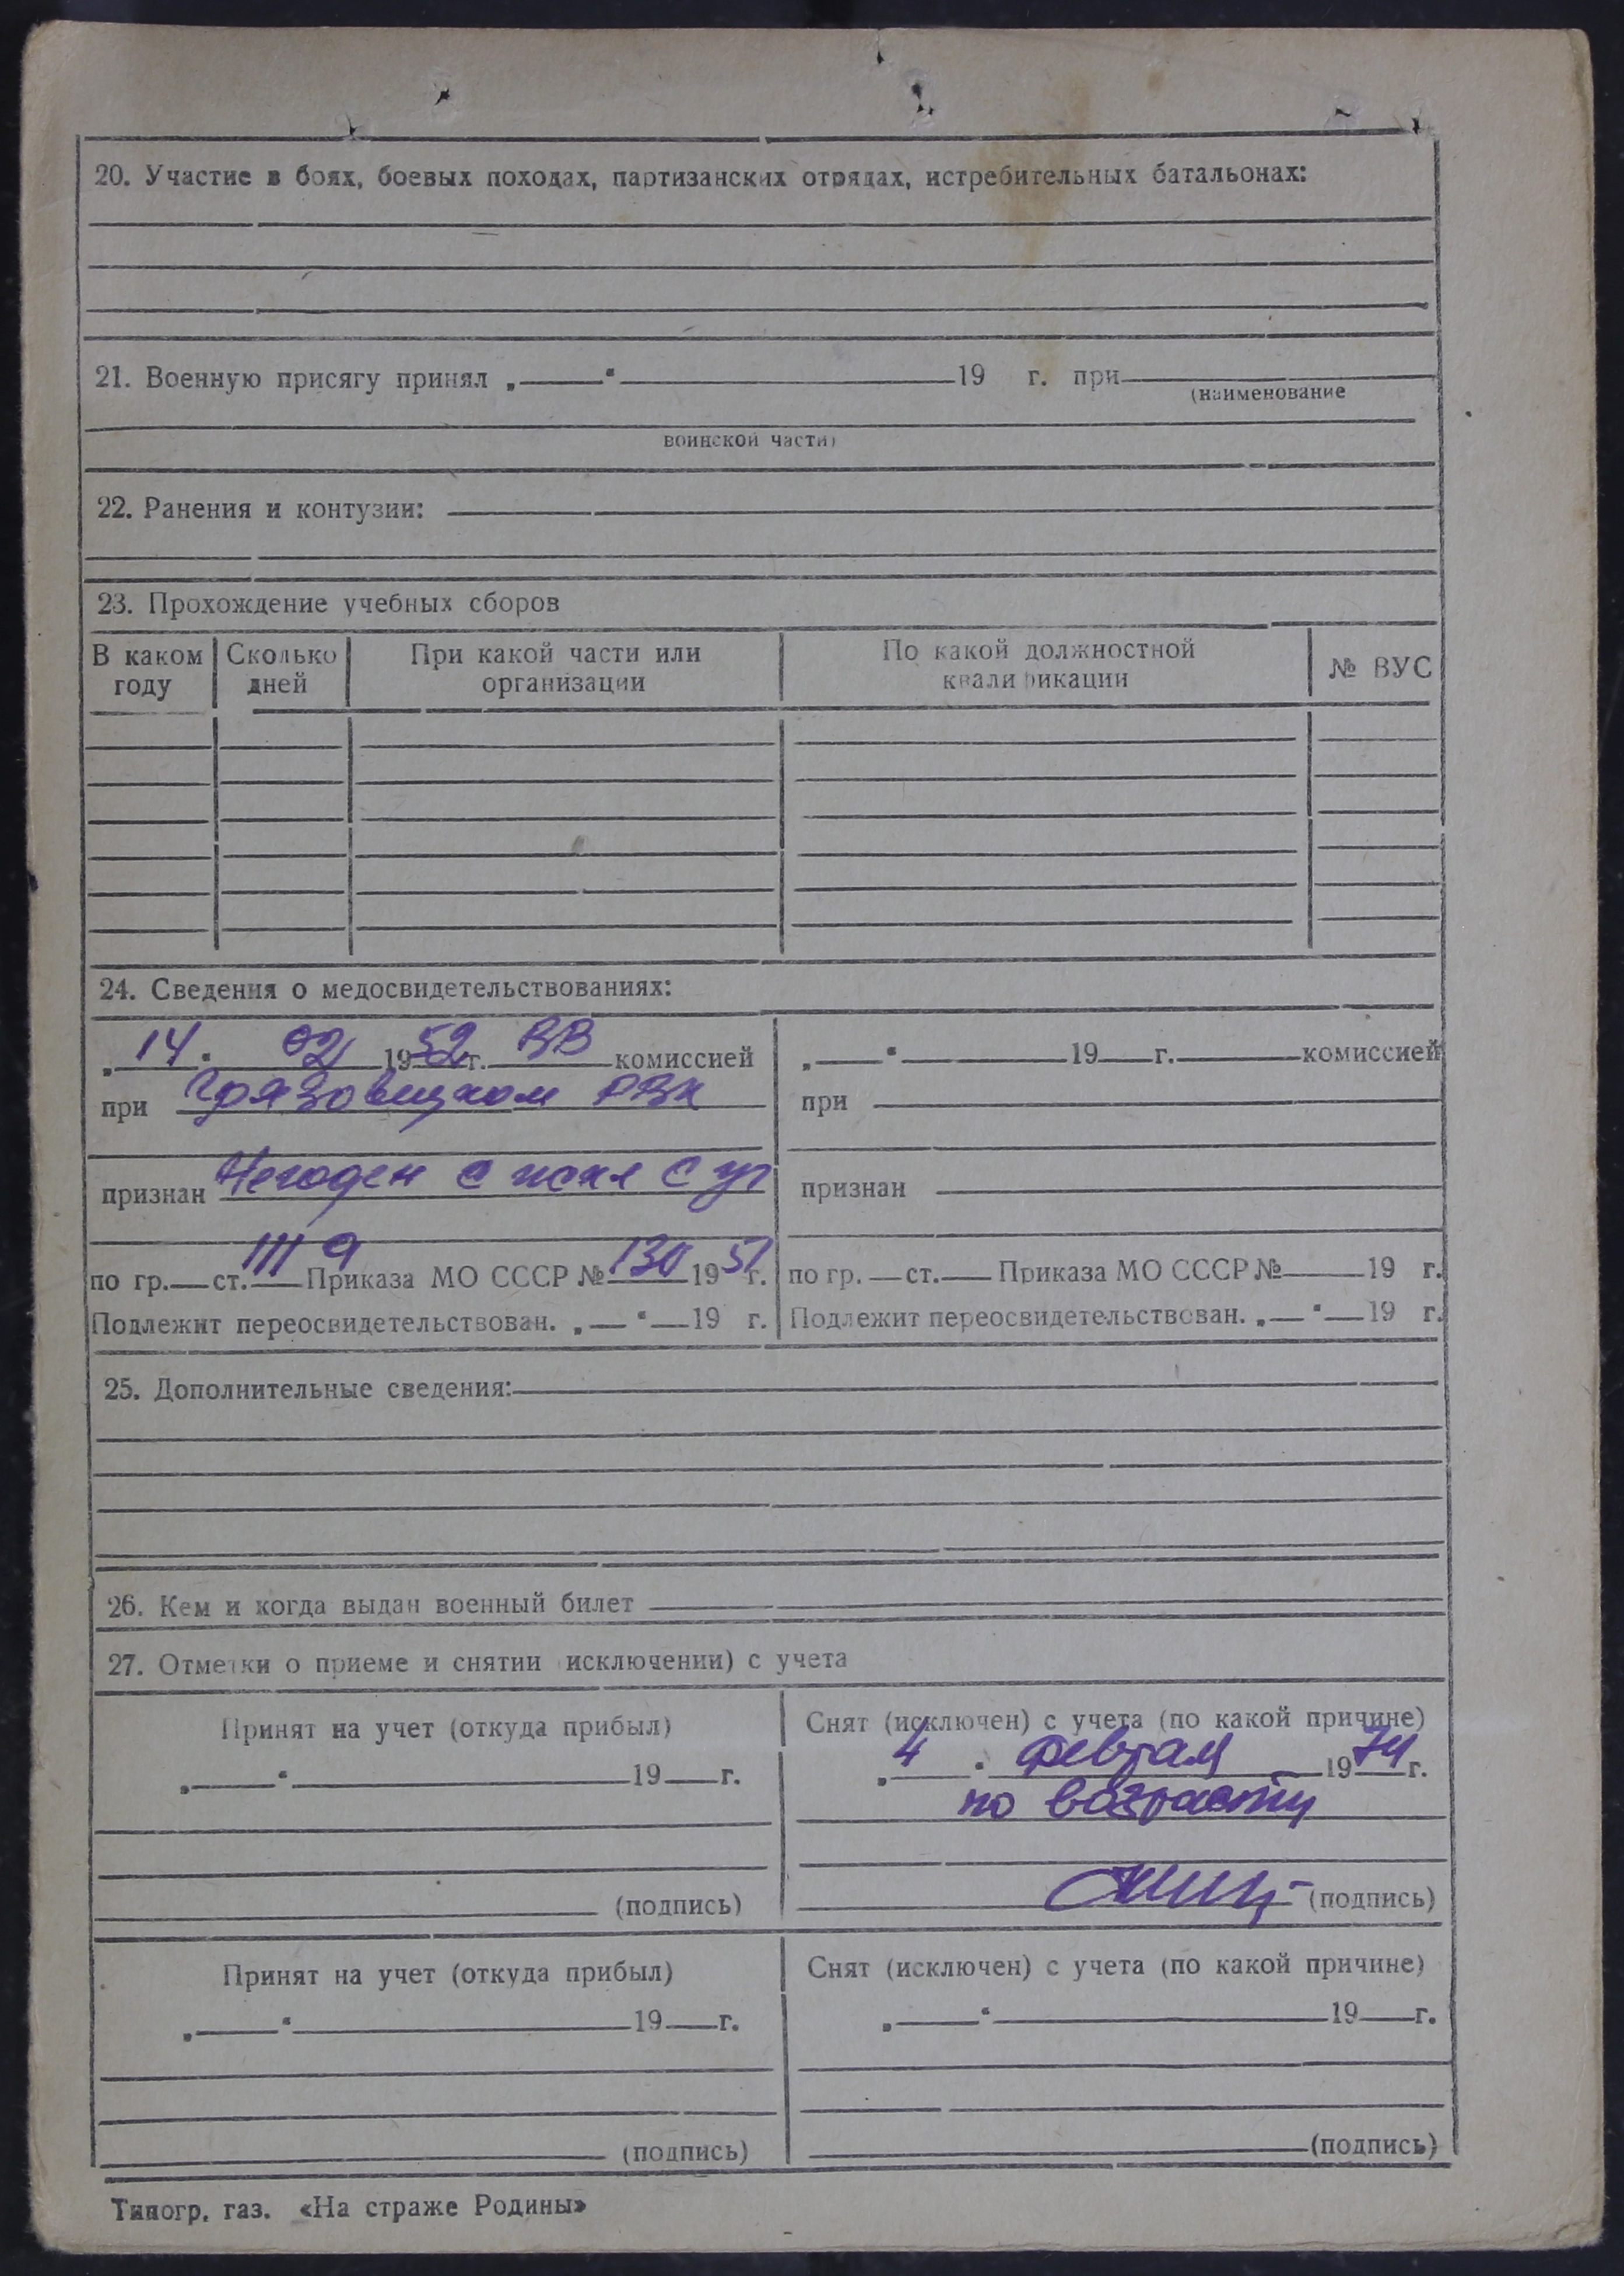 20. Участие в боях, боевых походах, партизанских отрядах, истребительных батальонах:
21. Военную присягу принял „ “ 19 г. при
(наименование
воинской части)
22. Ранения и контузии:
23. Прохождение учебных сборов
В каком году Сколько дней При какой части или организации По какой должностной квалификации № ВУС
24. Сведения о медосвидетельствованиях:
„14“ 02 1952 г. ВВ комиссией
при Грязовецком РВК
признан Негоден с искл с уч
по гр. ст. III 9 Приказа МО СССР № 130 1951 г.
Подлежит переосвидетельствован. „ “ 19 г.
„ “ 19 г. комиссией
при
признан
по гр. ст. Приказа МО СССР № 19 г.
Подлежит переосвидетельствован. „ “ 19 г.
25. Дополнительные сведения:
26. Кем и когда выдан военный билет
27. Отметки о приеме и снятии исключении) с учета
Принят на учет (откуда прибыл)
„ “ 19 г.
(подпись)
Снят (исключен) с учета (по какой причине)
„4“ февраля 1974 г.
по возрасту
(подпись)
Принят на учет (откуда прибыл)
„ “ 19 г.
(подпись)
Снят (исключен) с учета (по какой причине)
„ “ 19 г.
(подпись)
Типогр. газ. «На страже Родины»